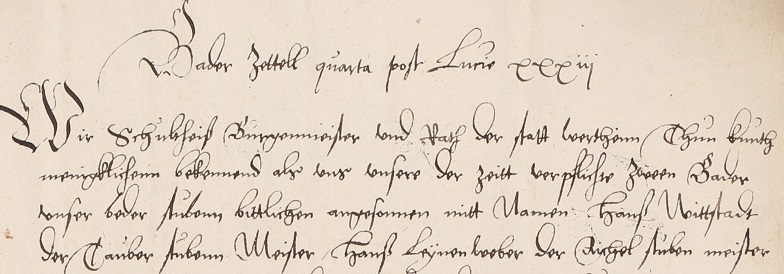 Bader Zettell quarta post Lucie xxxiij
Wir Schultheiß Burgermeister vnd Rath der statt wertheim Thun kunth
menigklichenn bekennend als vns vnsere der Zeitt verpflichte Zween Bader
vnser beder stubenn bittlichen angesonnen mitt Namen Hanß Wittstadt
der Tauber stubenn Meister Hanß Leynenweber der Eichel stuben meister